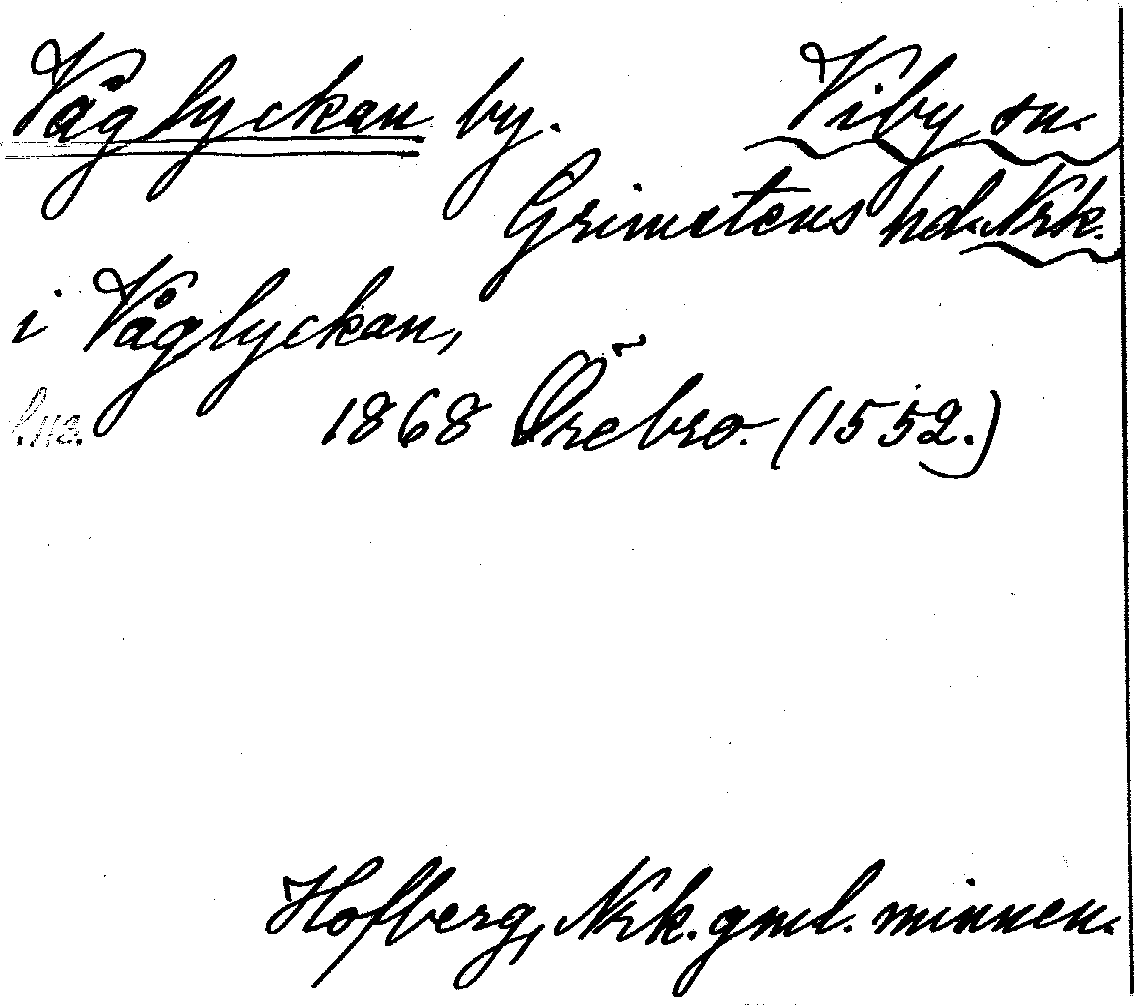 Våglyckan by. Viby sn.
Grimstens hd. Nrk.
i Våglyckan,
s. 118. 1868 Örebro. (1552.)
Hofberg, Nrk. gml. minnen.